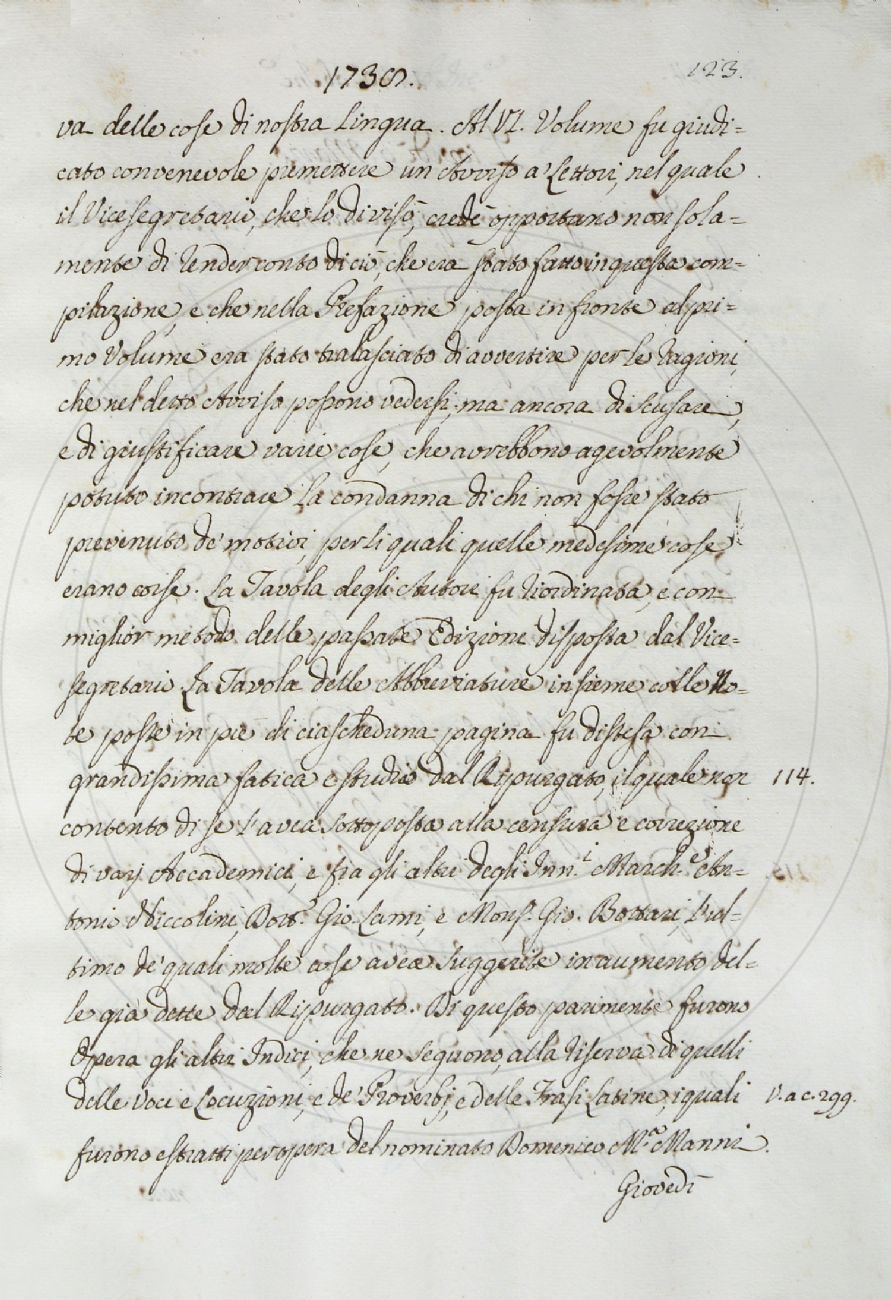 1738.
123.
va delle cose di nostra Lingua. Al VI. Volume fu giudi=
cato convenevole premettere un Avviso a Lettori, nel quale
il Vicesegretario, che lo divisò, credè opportuno non sola=
mente di render conto di ciò, che era stato fatto in questa com=
pilazione, e che nella Prefazione posta in fronte al pri=
mo Volume era stato tralasciato di avvertire per le ragioni,
che nel detto Avviso possono vedersi, ma ancora di scusare,
e di giustificare varie cose, che avrebbono agevolmente
potuto incontrare la condanna di chi non fosse stato
prevenuto de' motivi, per li quali quelle medesime cose
erano corse. La Tavola degli Autori fu riordinata, e con
miglior metodo delle passate Edizioni disposta dal Vice=
segretario La Tavola delle Abbreviature insieme colle No=
te poste in piè di ciascheduna pagina fu distesa con
grandissima fatica e studio dal Ripurgato, il quale non
114.
contento di se l'avea sottoposta alla censura e correzione
di varj Accademici, e fra gli altri degli Inn.i March.e An=
tonio Niccolini, Dott.r Gio. Lami, e Mons.r Gio. Bottari, l'ul=
timo de' quali molte cose avea suggerite in aumento del=
le già dette dal Ripurgato. Di questo parimente furono
Opera gli altri Indici, che ne seguono, alla riserva de' quelli
delle Voci e Locuzioni, e de' Proverbj, e delle Frasi Latine, i quali
V. a c. 299.
furono estratti per opera del nominato Domenico M.a Manni.
Giovedì